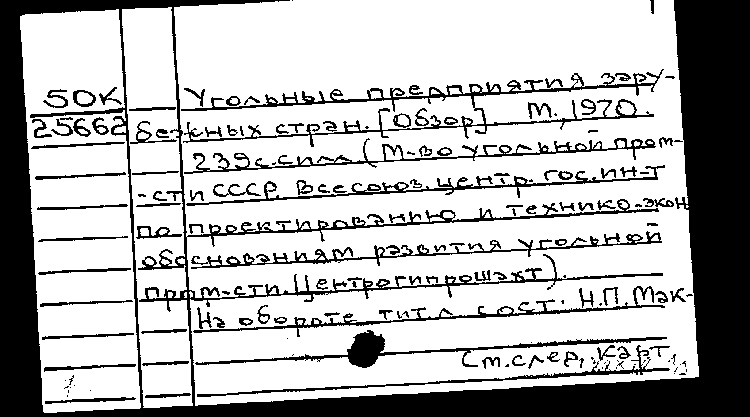 50К Угольные предприятия зару-
25662 бежных стран. [Обзор]. М., 1970.
239 с. с илл. (М-во угольной пром-
-сти СССР. Всесоюз. центр. гос. ин-т
по проектированию и технико-экон.
обоснованиям развития угольной
пром-сти. Центрогипрошахт).
На обороте тит. л. сост: Н.П. Мак-
См. след. карт.